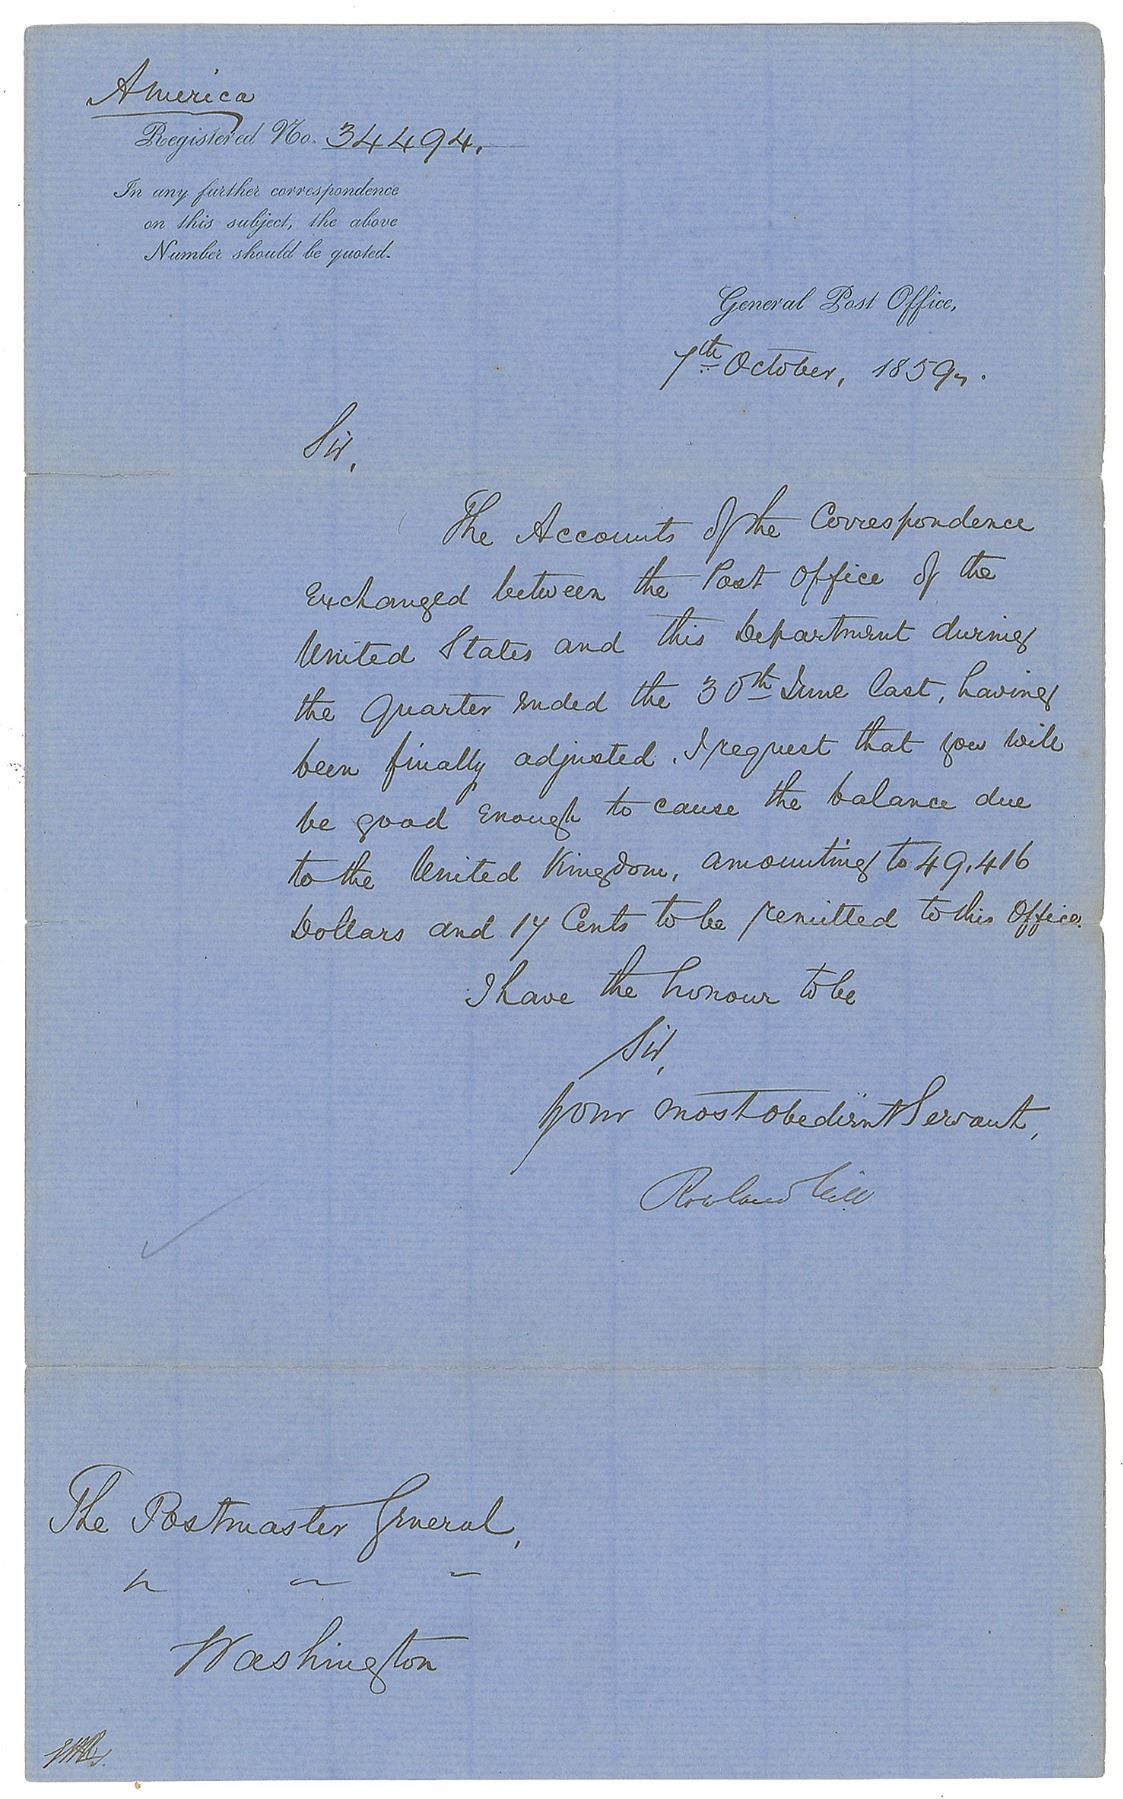 America
Registered No. 34494.
In any further correspondence
on this subject, the above
Number should be quoted.
General Post Office,
7th October, 1859.
Sir,
The Accounts of the Correspondence
exchanged between the Post Office of the
United States and this Department during
the Quarter ended the 30th June last, having
been finally adjusted. I request that you will
be good enough to cause the balance due
to the United Kingdom, amounting to 49,416
Dollars and 17 Cents to be remitted to this Office.
I have the honour to be
Sir,
Your most obedient Servant,
Rowland Hill
The Postmaster General,
Washington